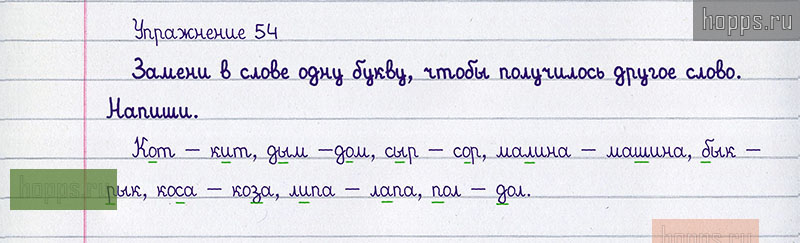 hopps.ru
Упражнение 54
Замени в слове одну букву, чтобы получилось другое слово.
Напиши.
Кот – кит, дым –дом, сыр – сор, малина – машина, бык –
рык, коса – коза, липа – лапа, пол – дол.
hopps.ru
hopps.ru